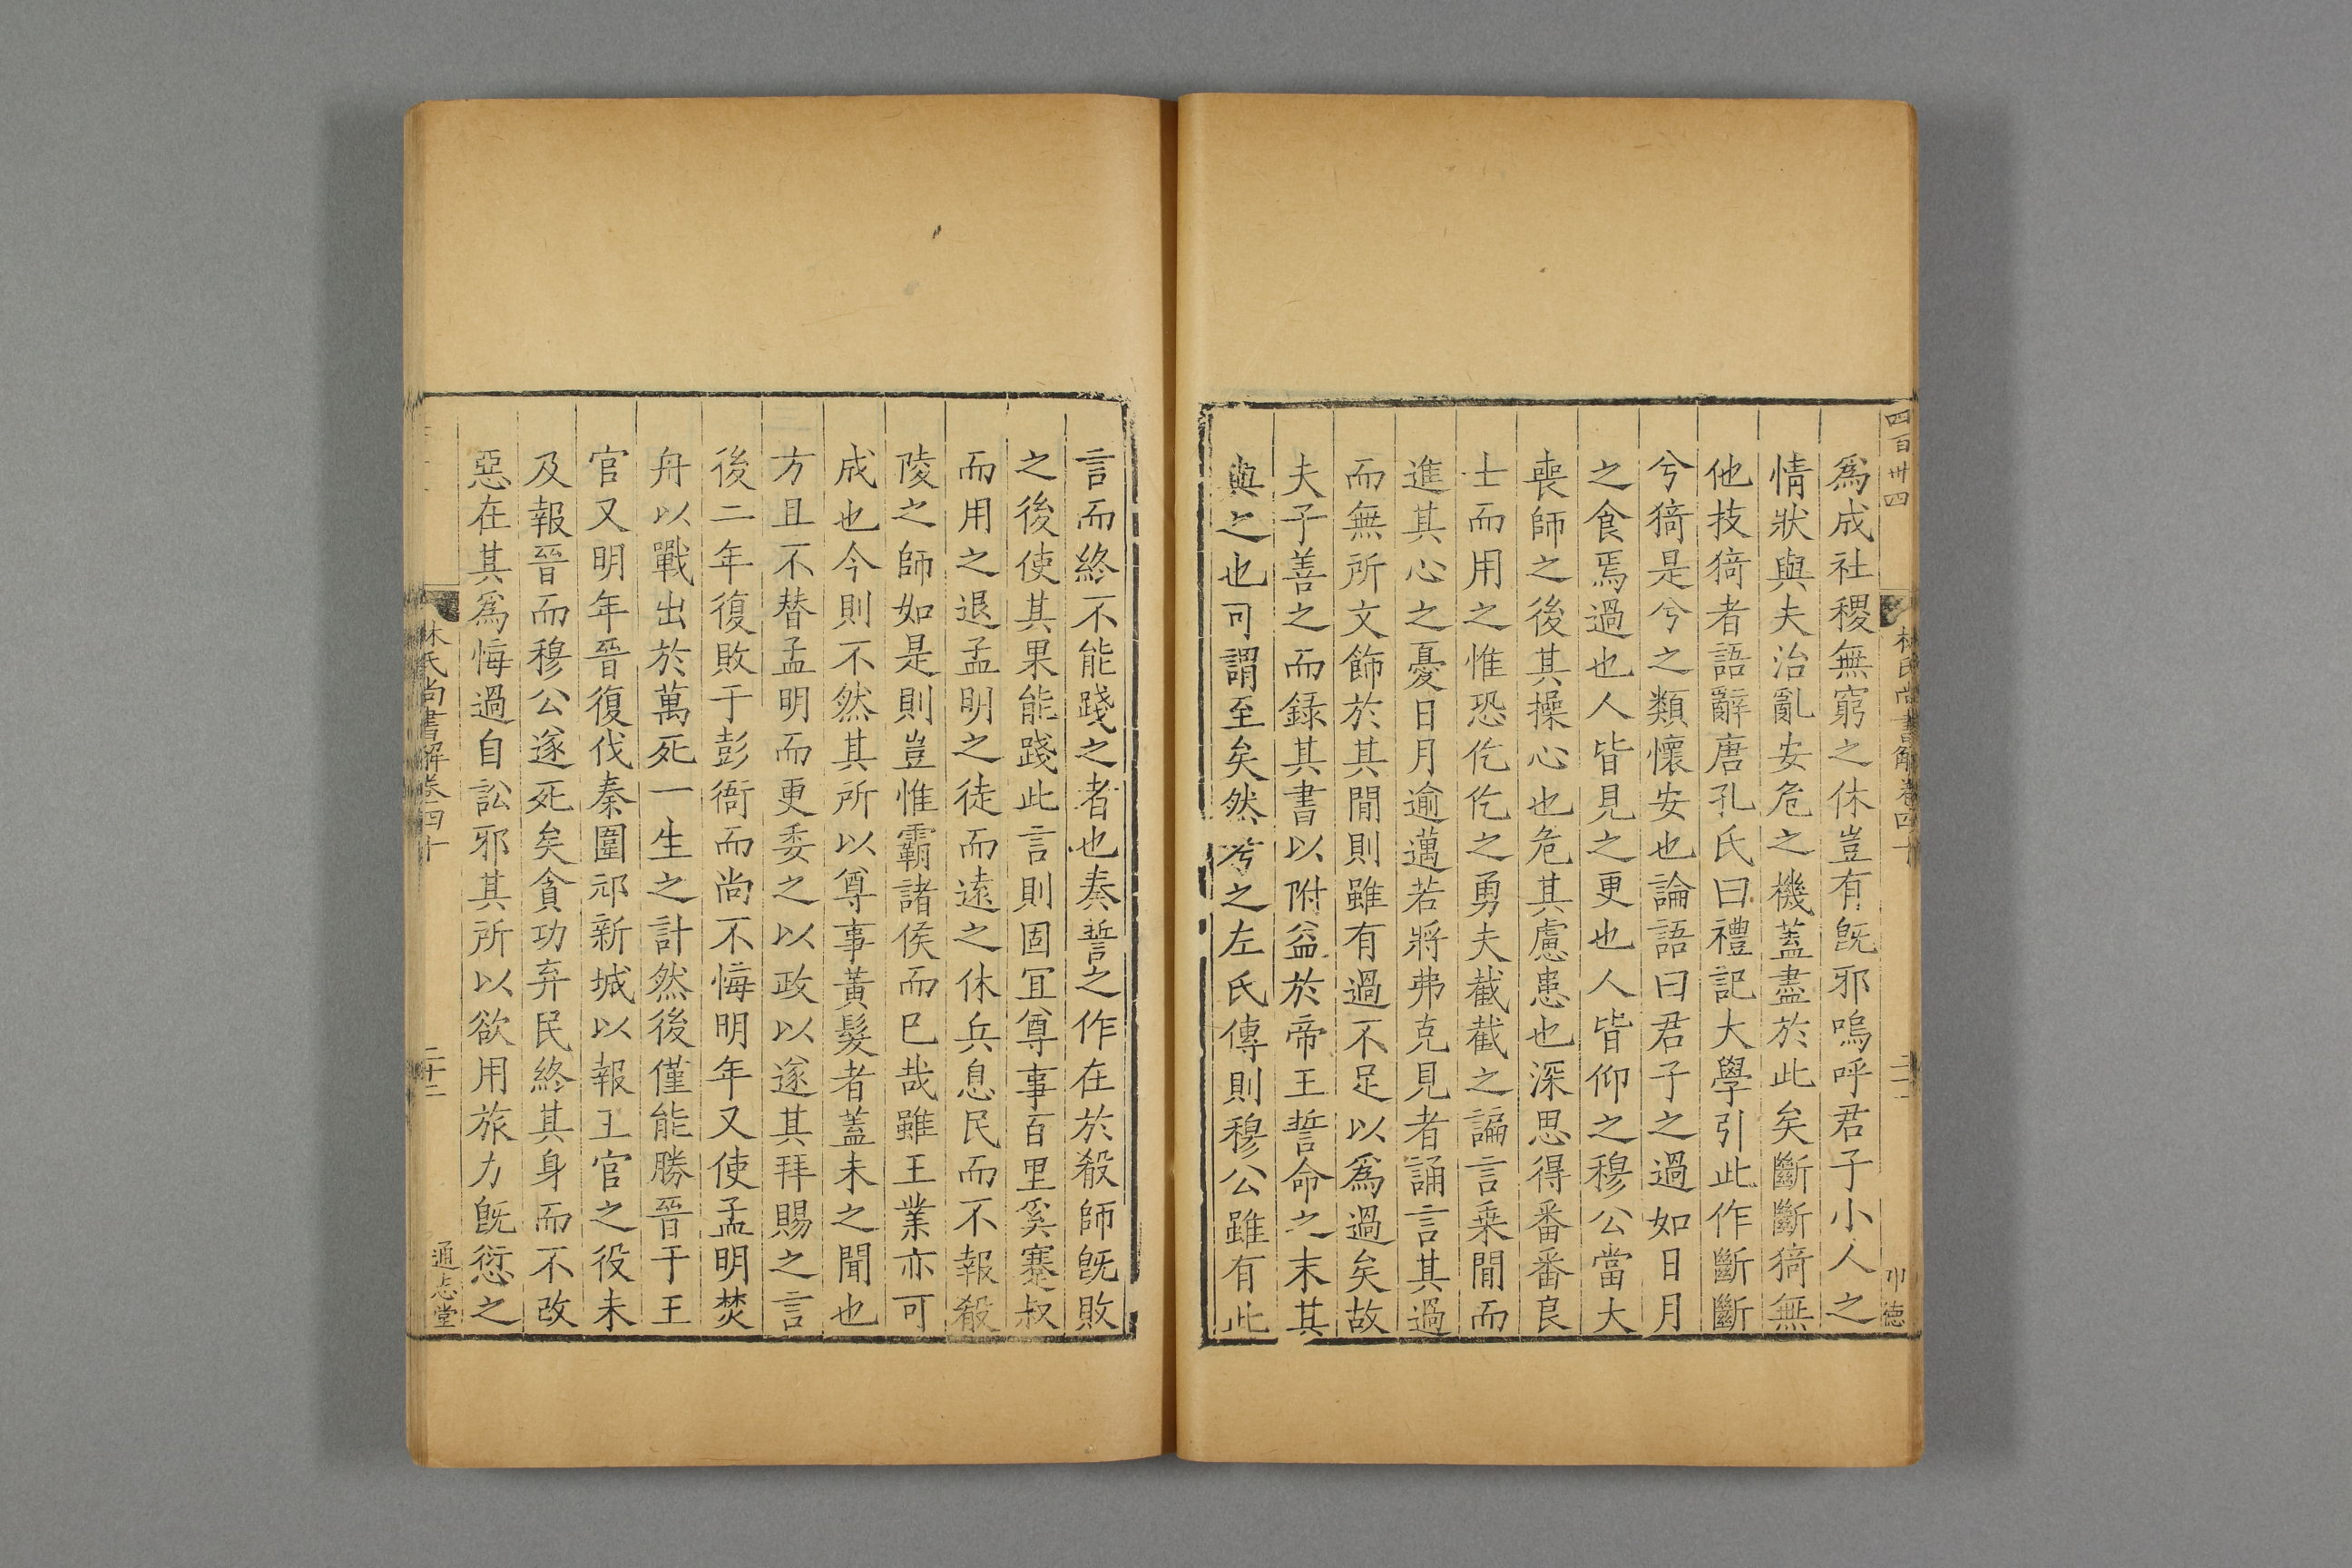 四百卅四
林氏尚書解卷四十
爲成社稷無窮之休豈有旣邪嗚呼君子小人之
情狀與夫治亂安危之機蓋盡於此矣斷斷猗無
他技猗者語辭唐孔氏曰禮記大學引此作斷斷
兮猗是兮之類懷安也論語曰君子之過如日月
之食焉過也人皆見之更也人皆仰之穆公當大
喪師之後其操心也危其慮患也深思得番番良
士而用之惟恐仡仡之勇夫截截之諞言乗閒而
進其心之憂日月逾邁若將弗克見者誦言其過
而無所文飾於其閒則雖有過不足以爲過矣故
夫子善之而録其書以附益於帝王誓命之末其
與之也可謂至矣然考之左氏傳則穆公雖有此
言而終不能踐之者也秦誓之作在於殽師旣敗
之後使其果能踐此言則固宜尊事百里奚蹇叔
而用之退孟明之徒而遠之休兵息民而不報殽
陵之師如是則豈惟霸諸侯而巳哉雖王業亦可
成也今則不然其所以尊事黃髮者蓋未之聞也
方且不替孟明而更委之以政以遂其拜賜之言
後二年復敗于彭衙而尚不悔明年又使孟明焚
舟以戰出於萬死一生之計然後僅能勝晉于王
官又明年晉復伐秦圍邧新城以報王官之役未
及報晉而穆公遂死矣貪功弃民終其身而不改
惡在其爲悔過自訟邪其所以欲用旅力旣愆之
林氏尚書解卷四十
二十二
通志堂